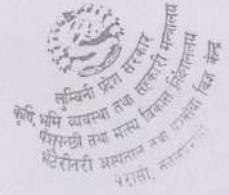 लुम्बिनी प्रदेश सरकार
कृषि, भूमि व्यवस्था तथा सहकारी मन्त्रालय
पशुपन्छी तथा मत्स्य विकास निर्देशनालय
भेटेरीनरी अस्पताल तथा पशुसेवा विज्ञ केन्द्र
परासी,